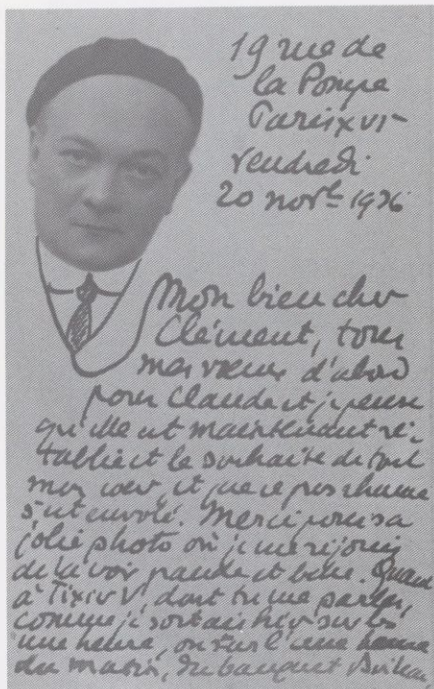 19 rue de
la Pompe
Paris XVI
Vendredi
20 novb 1936
Mon bien cher
Clément, tous
mes vœux d'abord
pour Claude et je pense
qu'elle est maintenant ré-
tablie et le souhaite de tout
mon cœur, et que ce gros rhume
s'est envolé. Merci pour sa
jolie photo où je me réjouis
de la voir grande et belle. Quant
à Tixier V, dont tu me parles,
comme je sortais hier sur les
une heure, ou sur l'une heure
du matin, du banquet